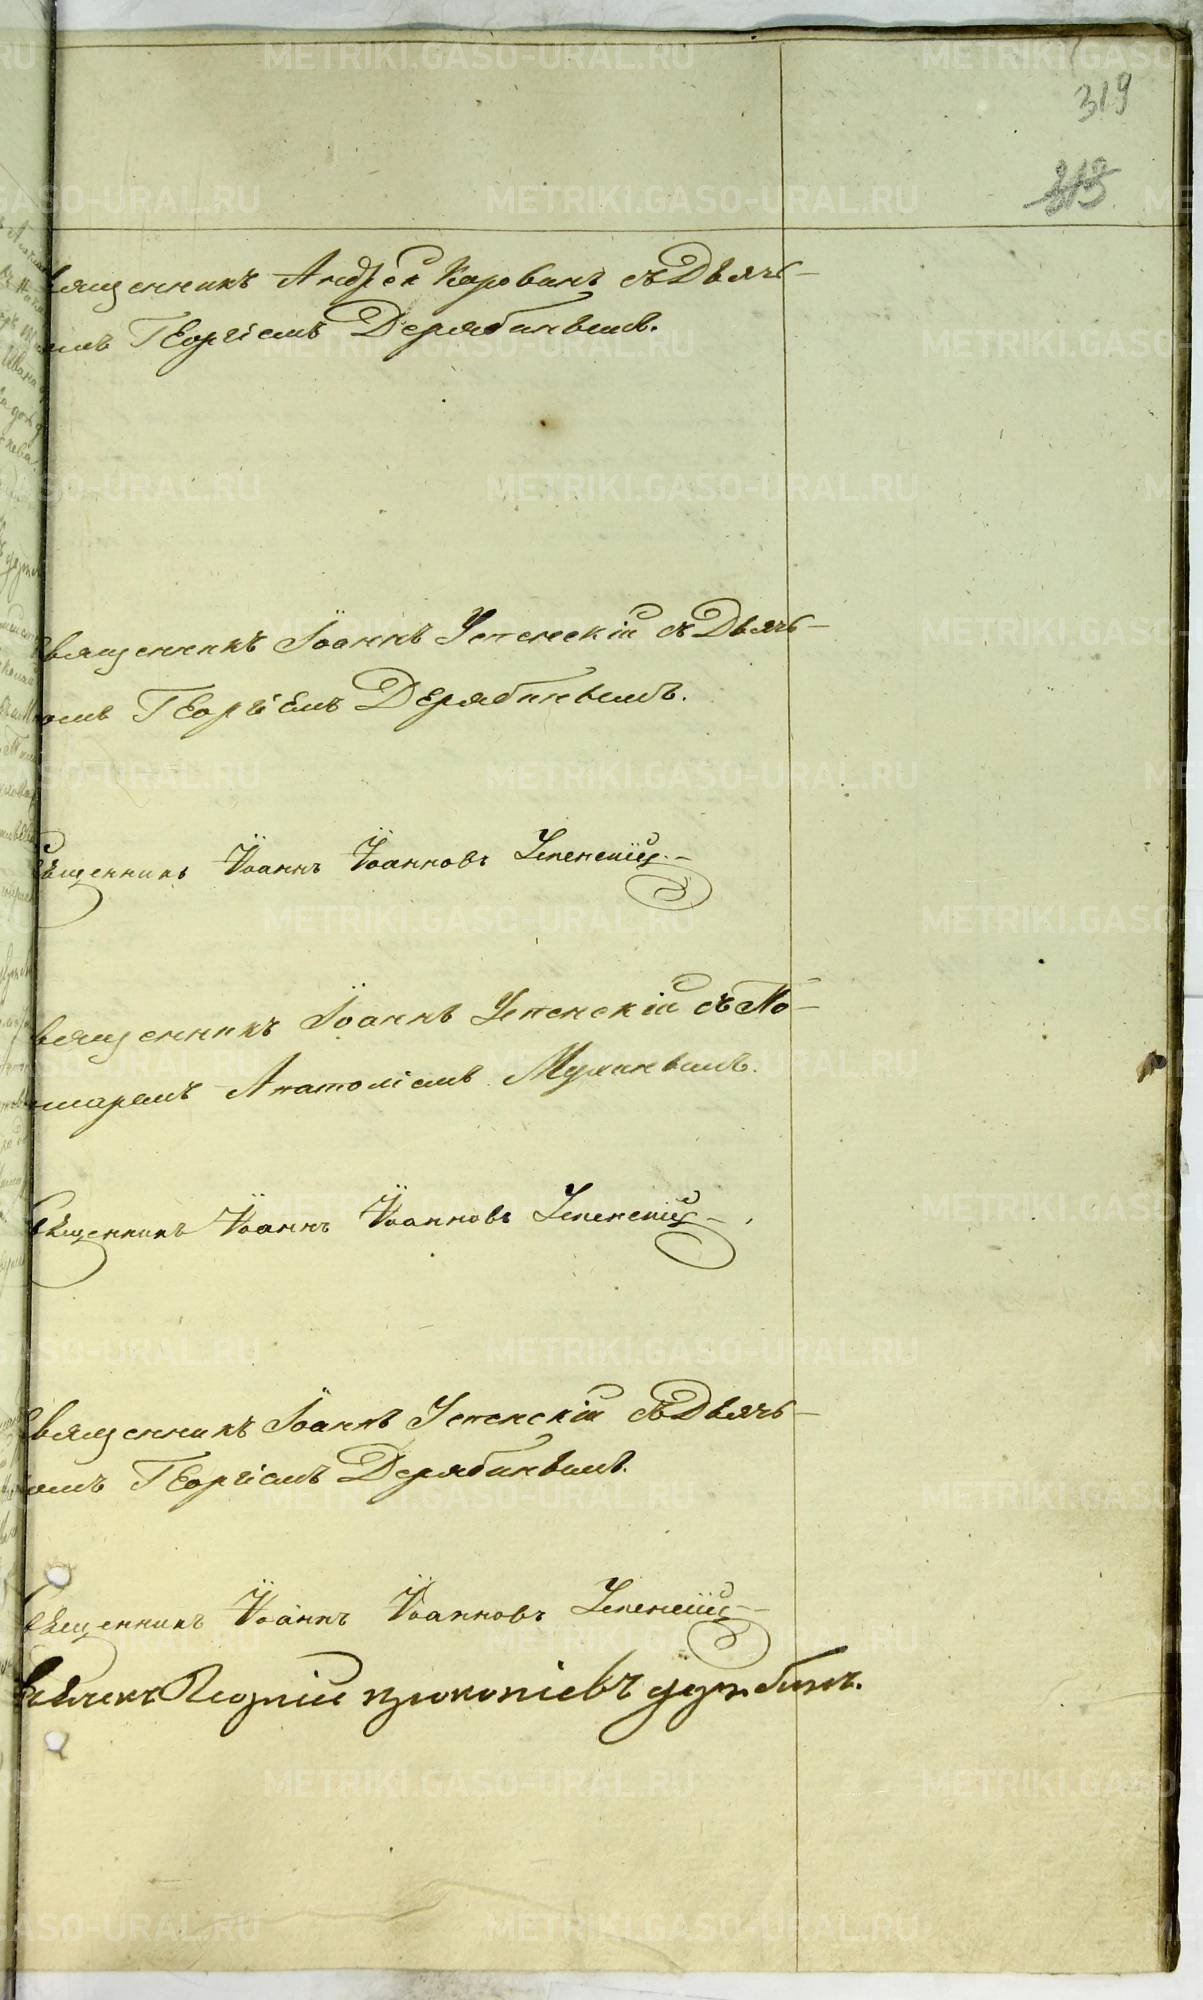 319
313
вященникъ Андрей Карованъ съ Дьяч-
омъ Георгіемъ Дерябинымъ.
вященникъ Іоаннъ Успенскій съ Дьяч-
омъ Георгіемъ Дерябинымъ.
Священникъ Іоаннъ Іоанновъ Успенскій
вященникъ Іоаннъ Успенскій съ По-
номаремъ Анатоліемъ Мухинымъ.
Священникъ Іоаннъ Іоанновъ Успенскій
Священникъ Іоаннъ Успенскій съ Дьяч-
комъ Георгіемъ Дерябинымъ.
Священникъ Іоаннъ Іоанновъ Успенскій
Дьячекъ прокопіевъ
METRIKI.GASO-URAL.RU